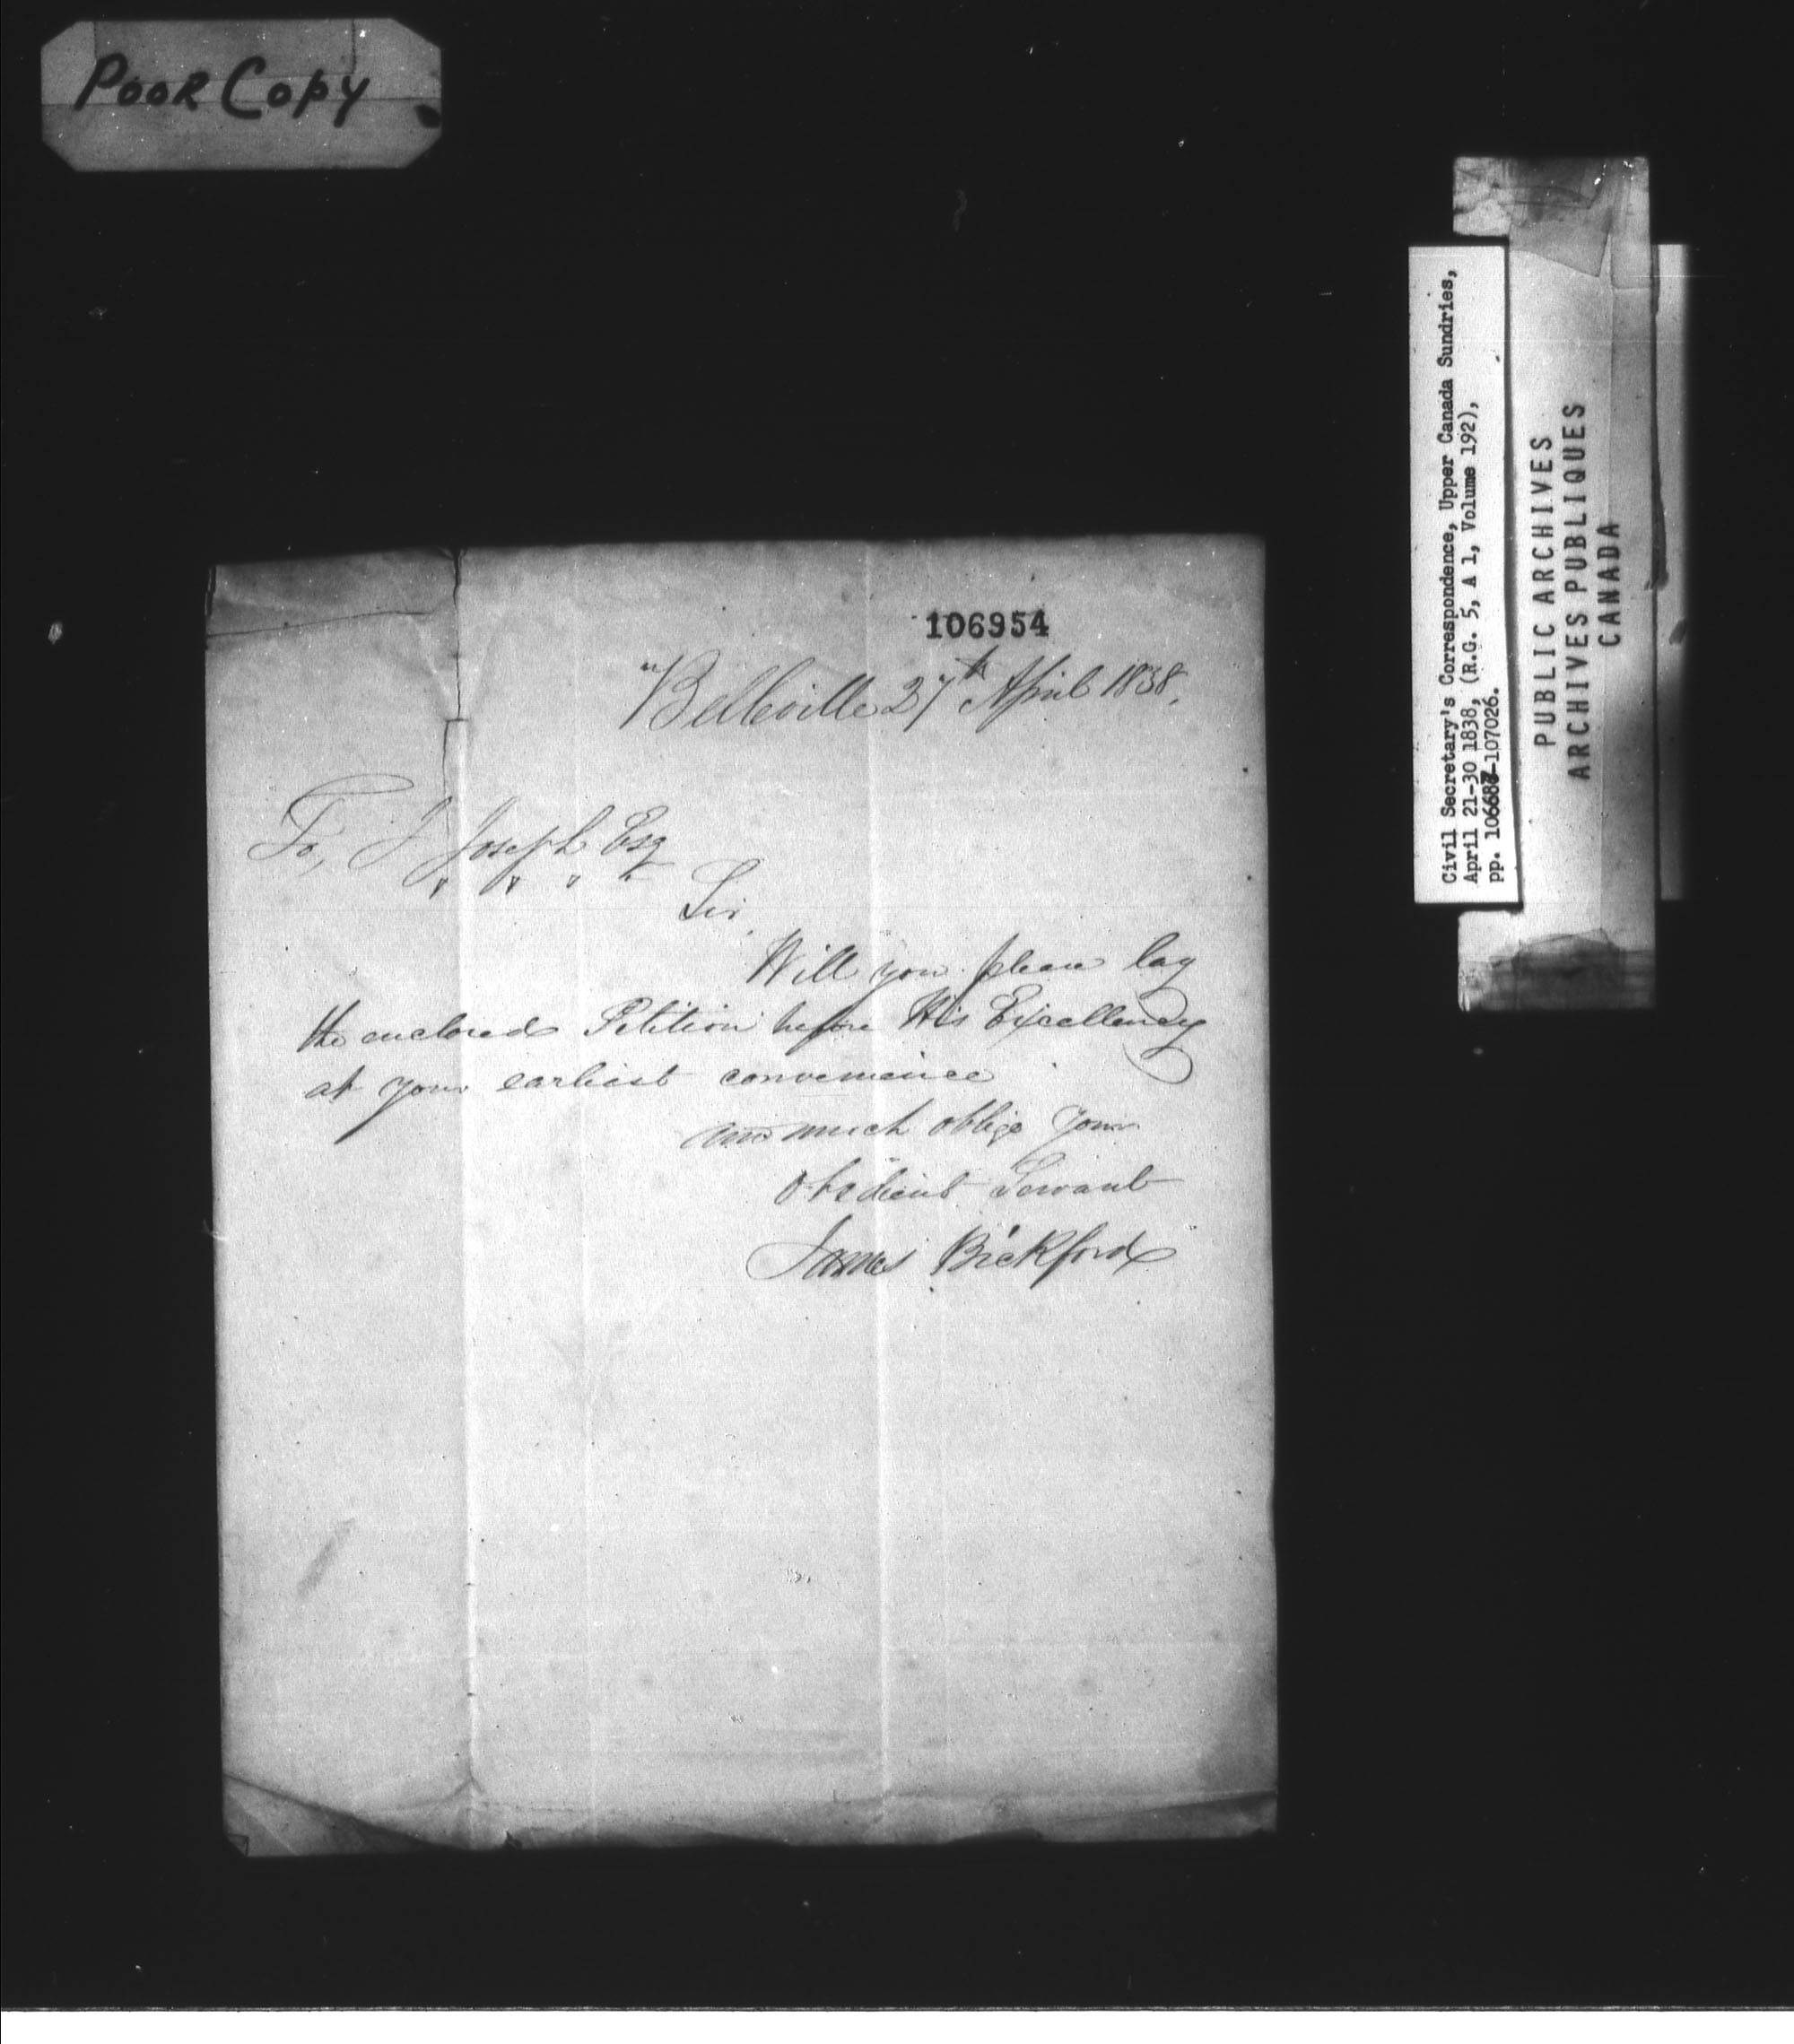 POOR COPY
106954
Belleville 27th April 1838.
To, J Joseph Esq
Sir,
Will you please lay
the enclosed Petition before His Excellency
at your earliest convenience
and much oblige your
obedient Servant
James Bickford
Civil Secretary's Correspondence, Upper Canada Sundries,
April 21-30 1838, (R.G. 5, A 1, Volume 192),
pp. 106687-107026.
PUBLIC ARCHIVES
ARCHIVES PUBLIQUES
CANADA